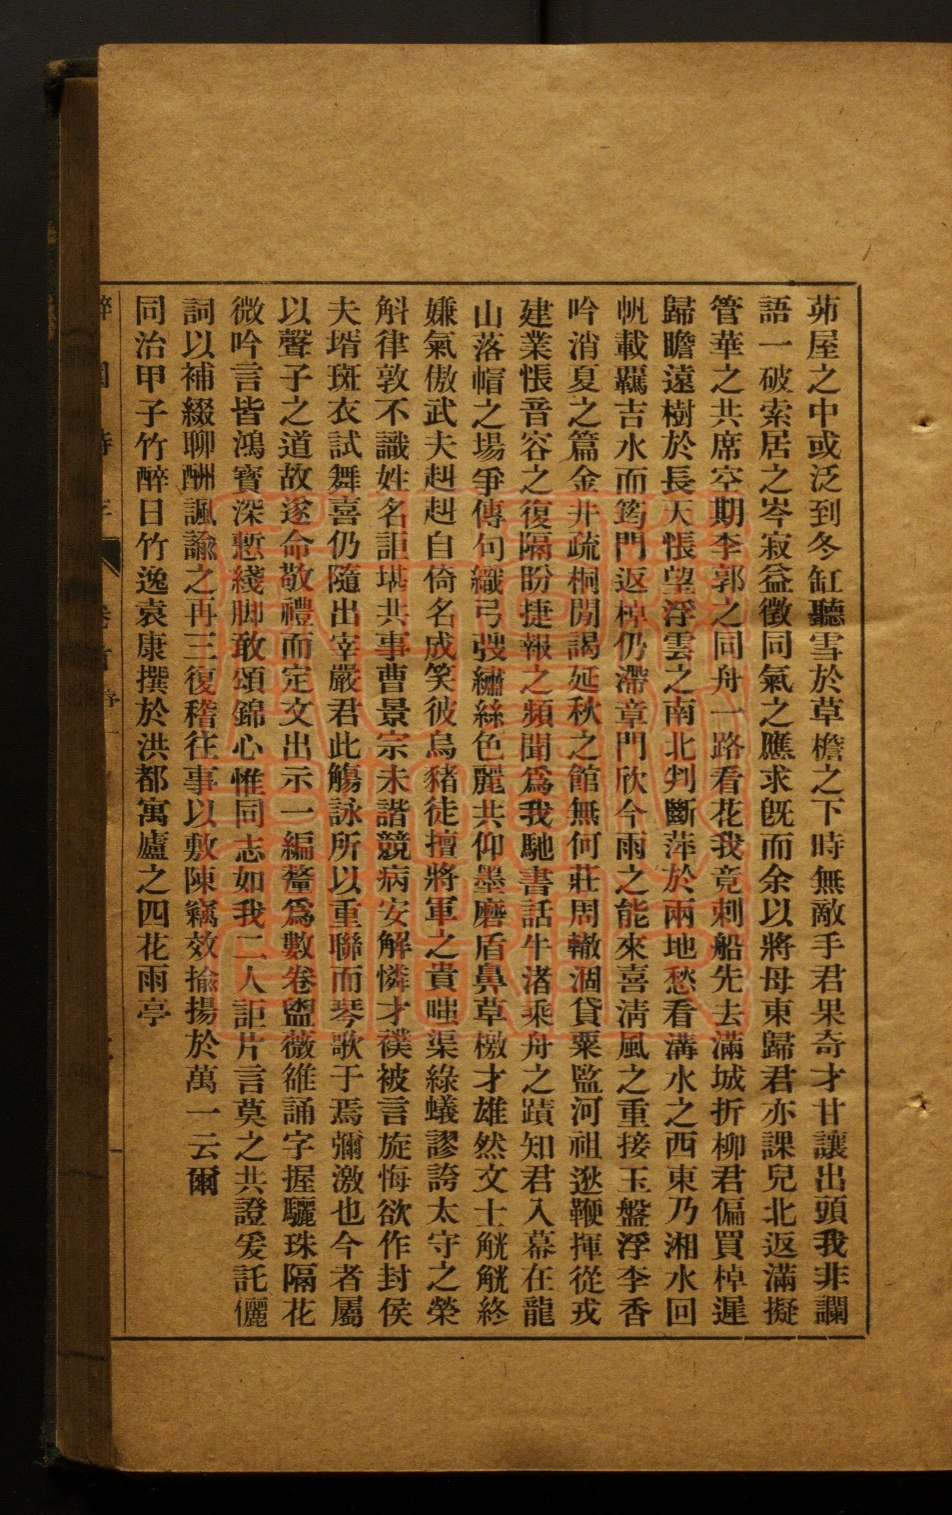 茆屋之中或泛到冬缸聽雪於草檐之下時無敵手君果奇才甘讓出頭我非讕
語一破索居之岑寂益徵同氣之應求旣而余以將母東歸君亦課兒北返滿擬
管華之共席空期李郭之同舟一路看花我竟刺船先去滿城折柳君偏買棹遲
歸瞻遠樹於長天悵望浮雲之南北判斷萍於兩地愁看溝水之西東乃湘水回
帆載羈吉水而筠門返棹仍滯章門欣今雨之能來喜淸風之重接玉盤浮李香
吟消夏之篇金井疏桐閒謁延秋之館無何莊周轍涸貸粟監河祖逖鞭揮從戎
建業悵音容之復隔盼捷報之頻聞爲我馳書話牛渚乘舟之蹟知君入幕在龍
山落帽之場爭傳句織弓弢繡絲色麗共仰墨磨盾鼻草檄才雄然文士觥觥終
嫌氣傲武夫赳赳自倚名成笑彼烏豬徒擅將軍之貴嗤渠綠蟻謬誇太守之榮
斛律敦不識姓名詎堪共事曹景宗未諧競病安解憐才襆被言旋悔欲作封侯
夫壻斑衣試舞喜仍隨出宰嚴君此觴詠所以重聯而琴歌于焉彌激也今者屬
以聲子之道故遂命敬禮而定文出示一編釐爲數卷盥薇雒誦字握驪珠隔花
微吟言皆鴻寳深慙綫脚敢頌錦心惟同志如我二人詎片言莫之共證爰託儷
詞以補綴聊酬諷諭之再三復稽往事以敷陳竊效揄揚於萬一云爾
同治甲子竹醉日竹逸袁康撰於洪都寓廬之四花雨亭